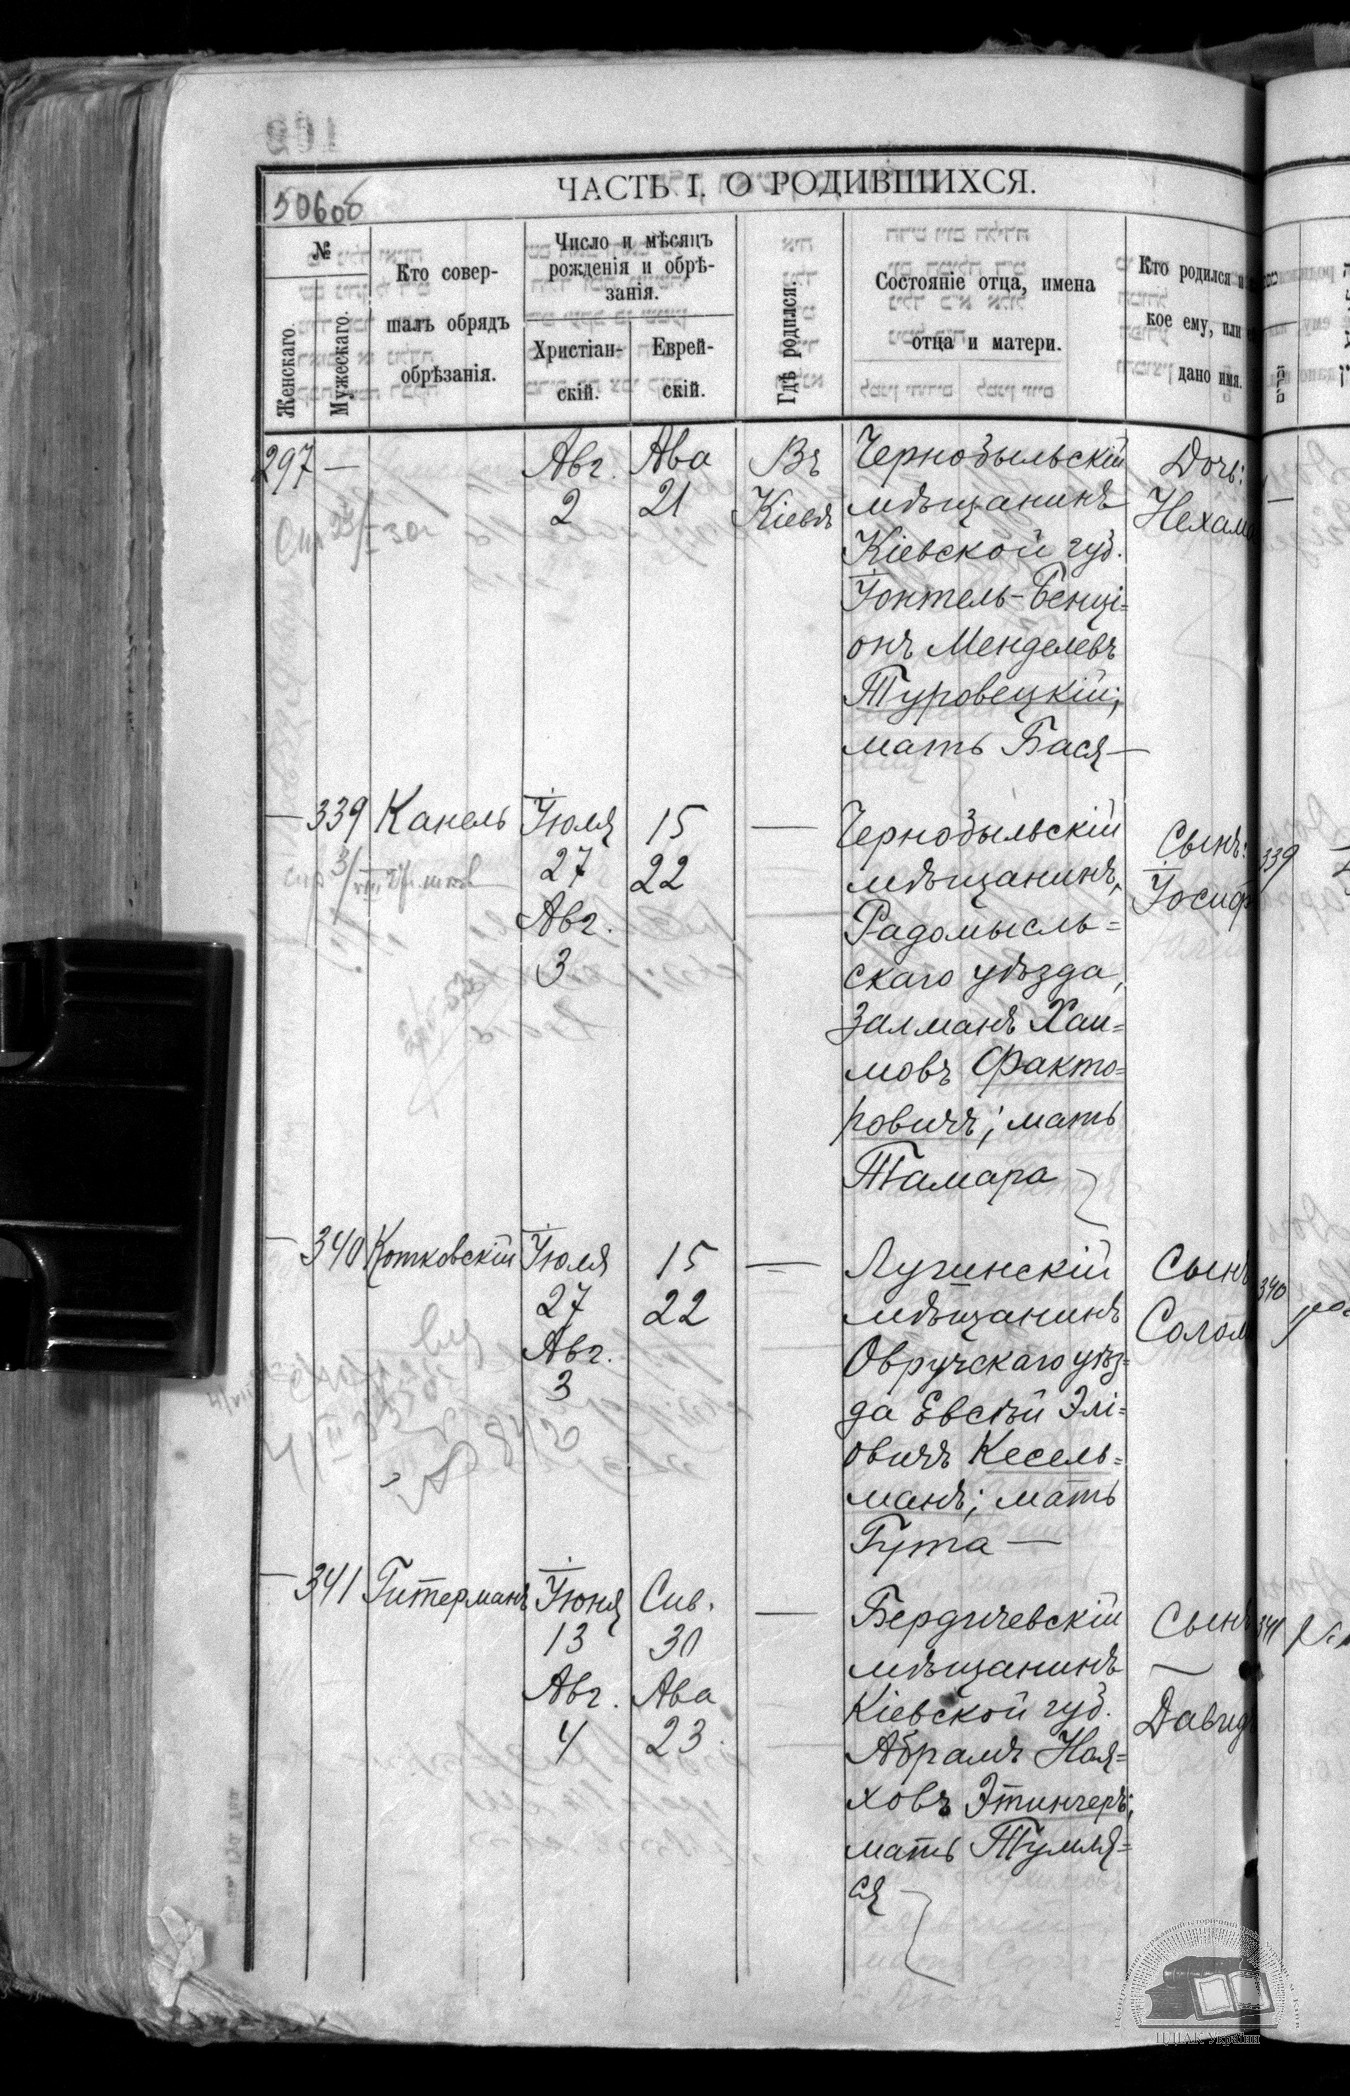 506об
ЧАСТЬ I, О РОДИВШИХСЯ.
№
Женскаго.
Мужескаго.
Кто совер-
шалъ обрядъ
обрѣзанія.
Число и мѣсяцъ
рожденія и обрѣ-
занія.
Христіан-
скій.
Еврей-
скій.
Гдѣ родился.
Состояніе отца, имена
отца и матери.
Кто родился и
кое ему, или
дано имя.
297 —
Авг.
2
Ава
21
Въ
Кіевѣ
Чернобыльскій
мѣщанинъ
Кіевской губ.
Іонтель-Бенці=
онъ Менделевъ
Туровецкій;
мать Бася —
Дочь:
Нехама
— 339
Канель
Іюля
27
Авг.
3
15
22
—
Чернобыльскій
мѣщанинъ,
Радомысль=
скаго уѣзда,
Залманъ Хаи=
мовъ Факто=
ровичъ; мать
Тамара
Сынъ:
Іосиф
339
— 340
Котковскій
Іюля
27
Авг.
3
15
22
—
Лугинскій
мѣщанинъ
Овручскаго уѣз=
да Евсѣй Элі=
овичъ Кесель=
манъ; мать
Гута —
Сынъ
Солом
340
— 341
Гитерманъ
Іюня
13
Авг.
4
Сив.
30
Ава
23
—
Бердичевскій
мѣщанинъ
Кіевской губ.
Абрамъ Ноя=
ховъ Этингеръ;
мать Тумля=
ся
Сынъ
—
Давид
341
ЦДІАК України